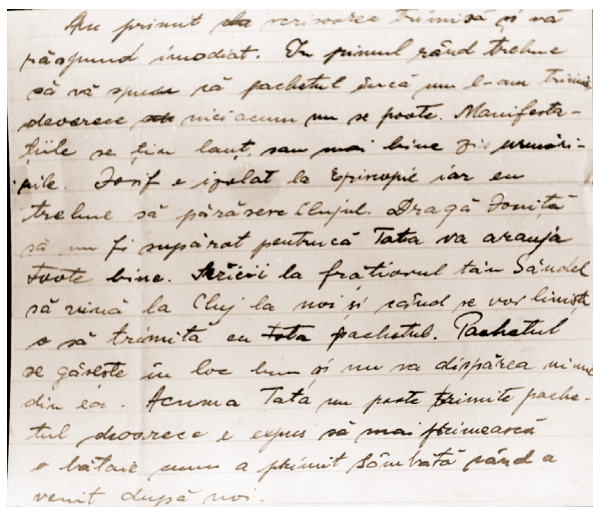 Am primit scrisoarea trimisă și vă
răspund imediat. În primul rând trebue
să vă spun că pachetul încă nu l-am trimis
deoarece nici acum nu se poate. Manifesta-
țiile se țin lanț, sau mai bine zis urmări-
rile. Iosif e izolat la Episcopie iar eu
trebue să părăsesc Clujul. Dragă Ioniță
să nu fi supărat pentrucă Tata va aranja
toate bine. Scrieii la frățiorul tău Săndel
să vină la Cluj la noi și când se vor liniști
o să trimita cu Tata pachetul. Pachetul
se găsește în loc bun și nu va dispărea nimic
din el. Acuma Tata nu poate trimite pache-
tul deoarece e expus să mai primească
o bătaie cum a primit Sâmbătă când a
venit după noi.